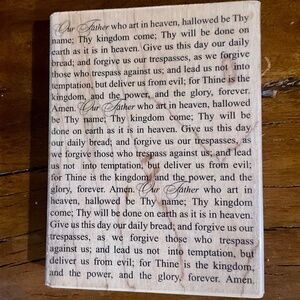 Our Father who art in heaven, hallowed be Thy
name; Thy kingdom come; Thy will be done on
earth as it is in heaven. Give us this day our daily
bread; and forgive us our trespasses, as we forgive
those who trespass against us; and lead us not into
temptation, but deliver us from evil; for Thine is the
kingdom, and the power, and the glory, forever.
Amen. Our Father who art in heaven, hallowed
be Thy name; Thy kingdom come; Thy will be
done on earth as it is in heaven. Give us this day
our daily bread; and forgive us our trespasses, as
we forgive those who trespass against us; and lead
us not into temptation, but deliver us from evil;
for Thine is the kingdom, and the power, and the
glory, forever. Amen. Our Father who art in
heaven, hallowed be Thy name; Thy kingdom
come; Thy will be done on earth as it is in heaven.
Give us this day our daily bread; and forgive us our
trespasses, as we forgive those who trespass
against us; and lead us not into temptation, but
deliver us from evil; for Thine is the kingdom,
and the power, and the glory, forever. Amen.